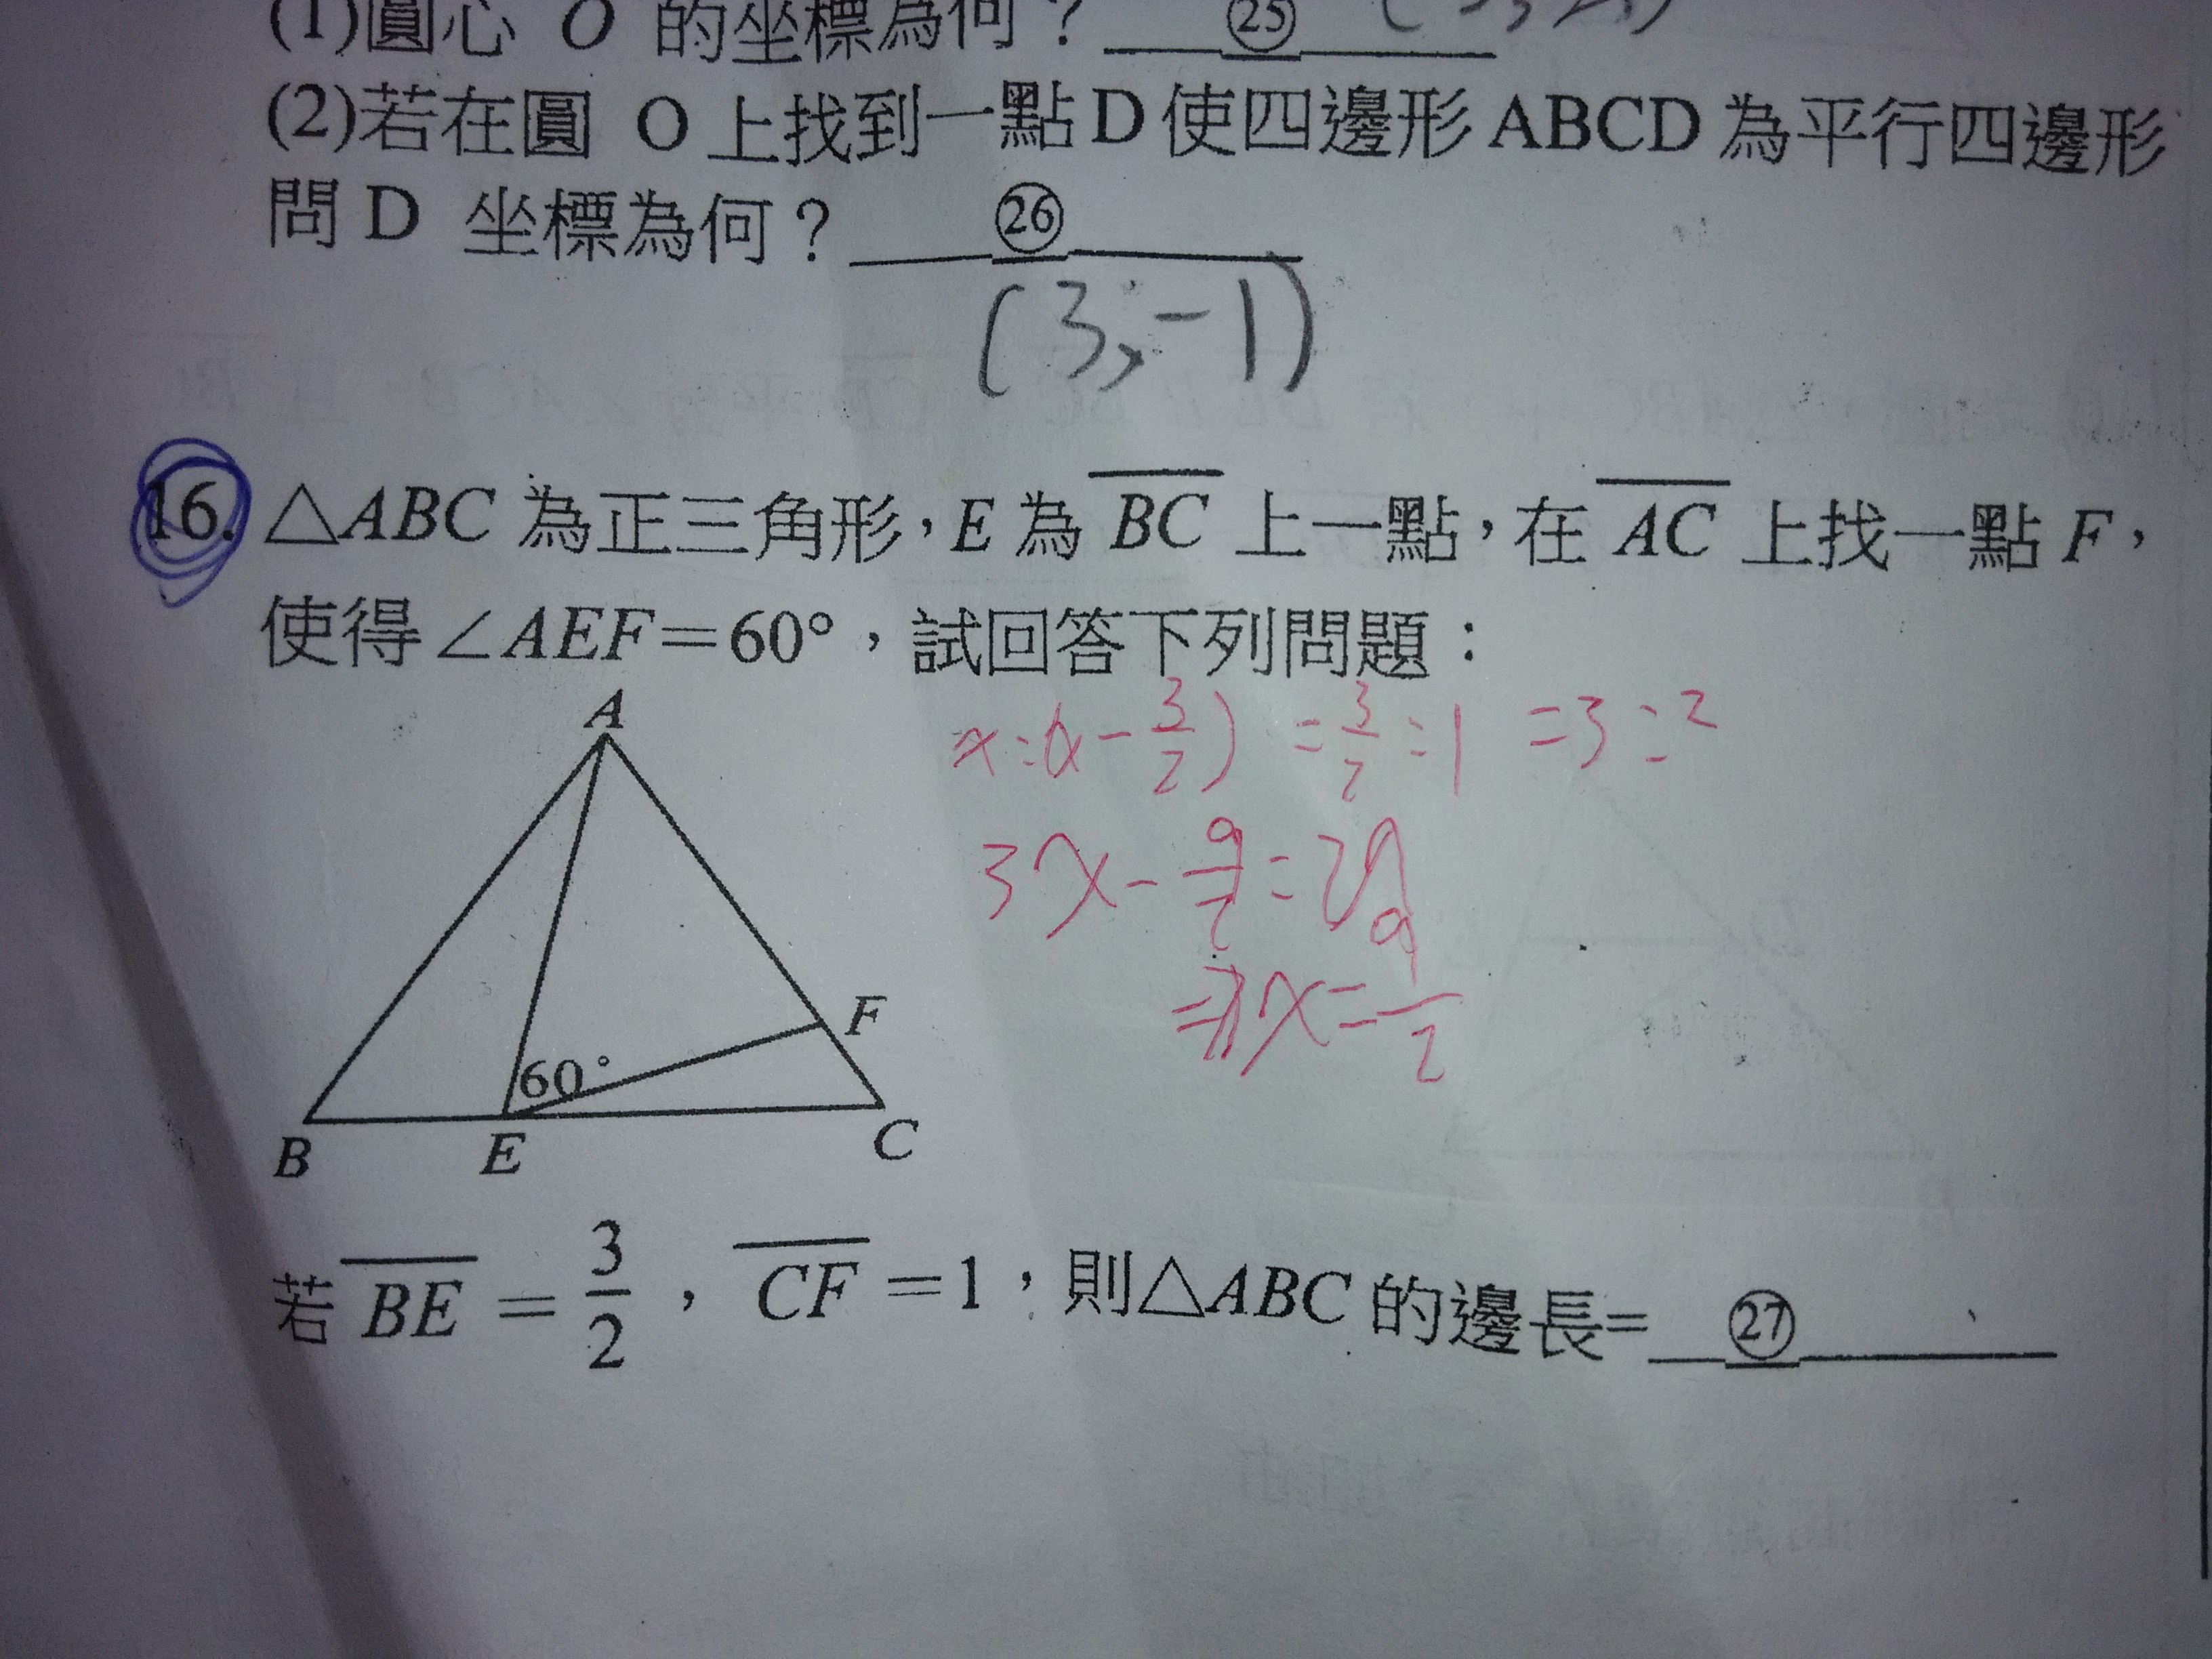 (1)圓心 O 的坐標為何？ ㉕
(2)若在圓 O 上找到一點D使四邊形ABCD為平行四邊形
問D 坐標為何？ ㉖
(3,-1)
16. △ABC 為正三角形，E 為 BC 上一點，在 AC 上找一點 F，
使得∠AEF＝60°，試回答下列問題：
x:(x-3/2) = 3/2:1 =3:2
3x-9/2=2x
⇒x=9/2
A
F
60°
B E C
若 BE = 3/2 ， CF =1，則△ABC 的邊長= ㉗